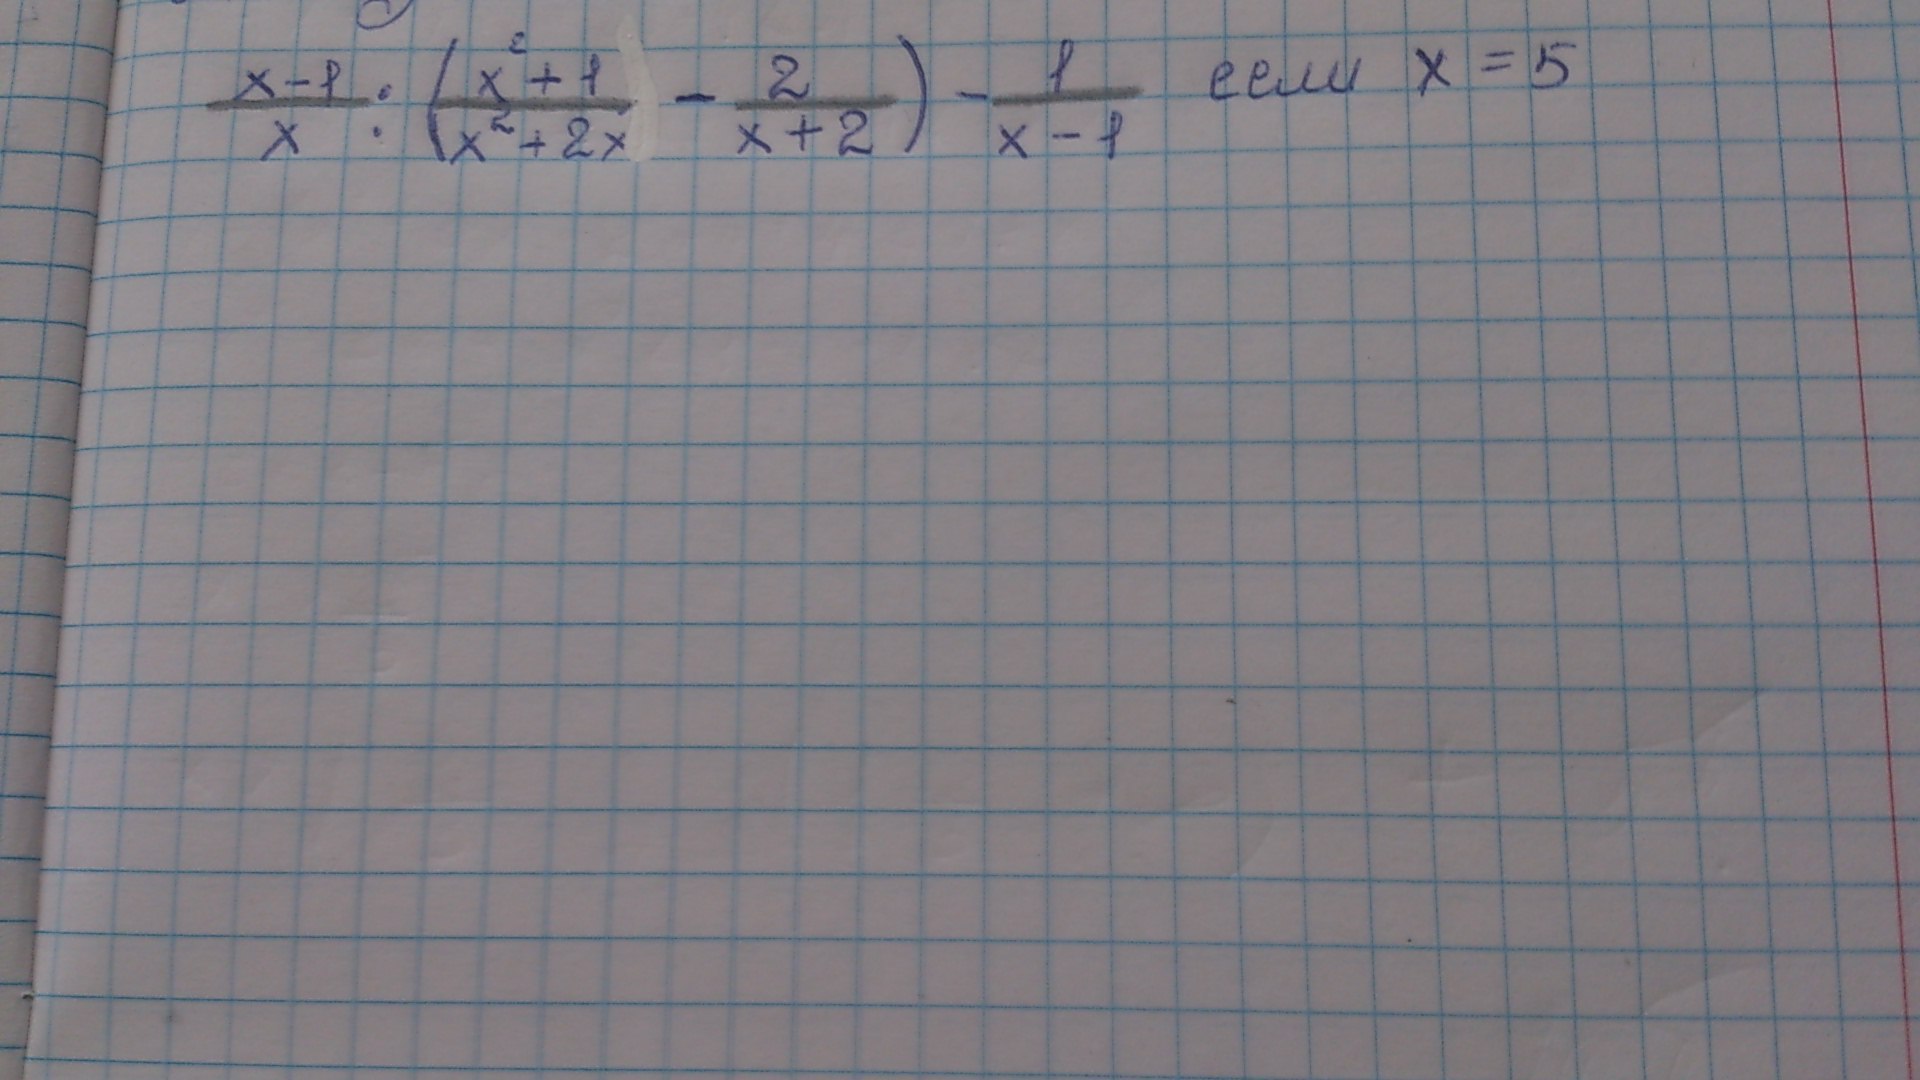 (x-1)/x : ((x²+1)/(x²+2x) - 2/(x+2)) - 1/(x-1) если x=5